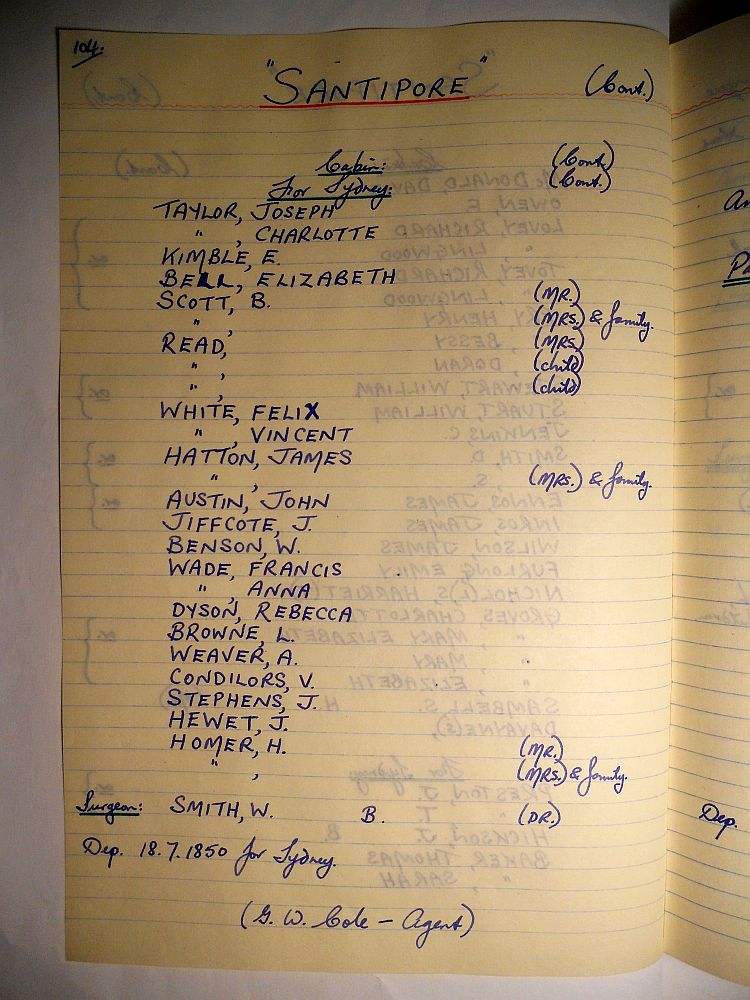 104.
"SANTIPORE" (Cont.)
Cabin: (Cont.)
For Sydney: (Cont.)
TAYLOR, JOSEPH
" , CHARLOTTE
KIMBLE, E.
BELL, ELIZABETH
SCOTT, B. (MR.)
" , (MRS.) & family.
READ, (MRS.)
" , (child)
" , (child)
WHITE, FELIX
" , VINCENT
HATTON, JAMES
" , (MRS.) & family.
AUSTIN, JOHN
JIFFCOTE, J.
BENSON, W.
WADE, FRANCIS
" , ANNA
DYSON, REBECCA
BROWNE, L.
WEAVER, A.
CONDILORS, V.
STEPHENS, J.
HEWET, J.
HOMER, H. (MR.)
" , (MRS.) & family.
Surgeon: SMITH, W. B. (DR.)
Dep. 18.7.1850 for Sydney.
(G. W. Cole - Agent)
Dep.